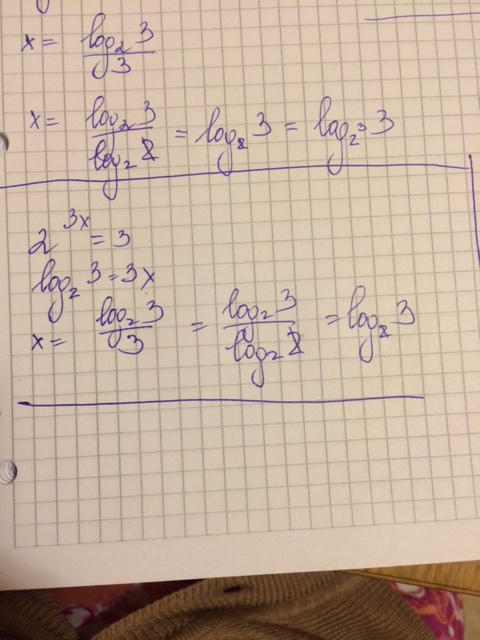 x = log₂3 / 3
x = log₂3 / log₂8 = log₈3 = log₂³3
2³ˣ = 3
log₂3 = 3x
x = log₂3 / 3 = log₂3 / log₂8 = log₈3